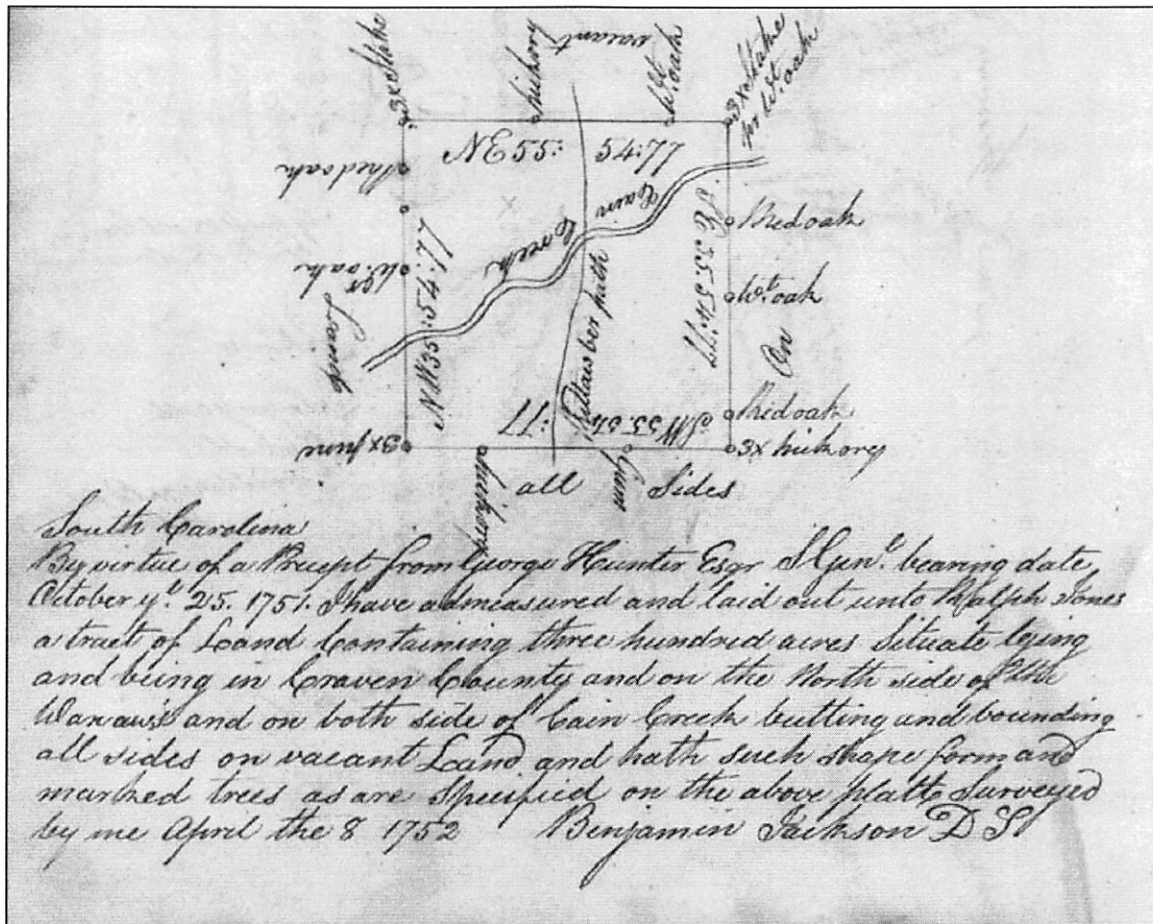 3x Stake
for Wt. oak
Wt. oak
vacant
hickory
Red oak
Wt. oak
Land
NE 55: 54:77
SE 35. 54:77
SW 55. 54
:77
NW 35: 54:77
Cain
Creek
path
Red oak
Wt. oak
On
Red oak
3x hickory
3x pine
hickory
Gum
all Sides
South Carolina
By virtue of a Precept from George Hunter Esqr S Genl. bearing date
October ye. 25. 1751. I have admeasured and laid out unto Ralph Jones
a tract of Land Containing three hundred acres Situate lying
and being in Craven County and on the North side of the
and on both side of Cain Creek butting and bounding
all sides on vacant Land and hath such shape form and
marked trees as are Specified on the above platt Surveyed
by me April the 8 1752 Benjamin Jackson D S